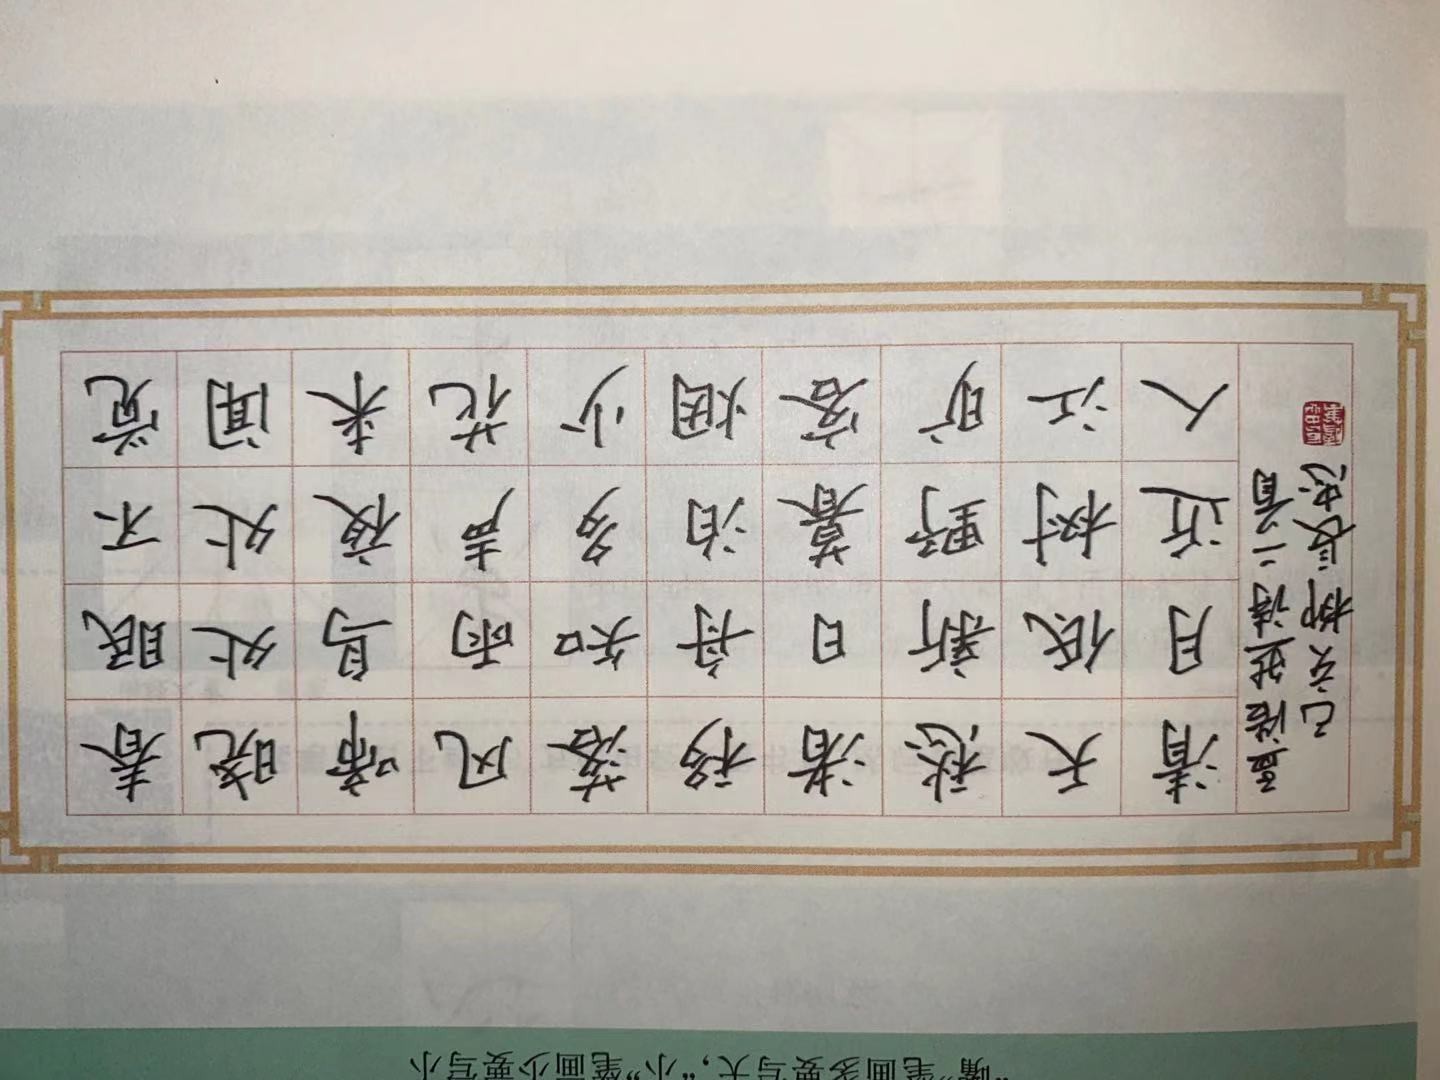 "嘴"笔画多要写大，"小"笔画少要写小
春眠不觉
晓处处闻
啼鸟夜来
风雨声花
落知多少
移舟泊烟
渚日暮客
愁新野旷
天低树江
清月近人
孟浩然诗二首
己亥柳長忠